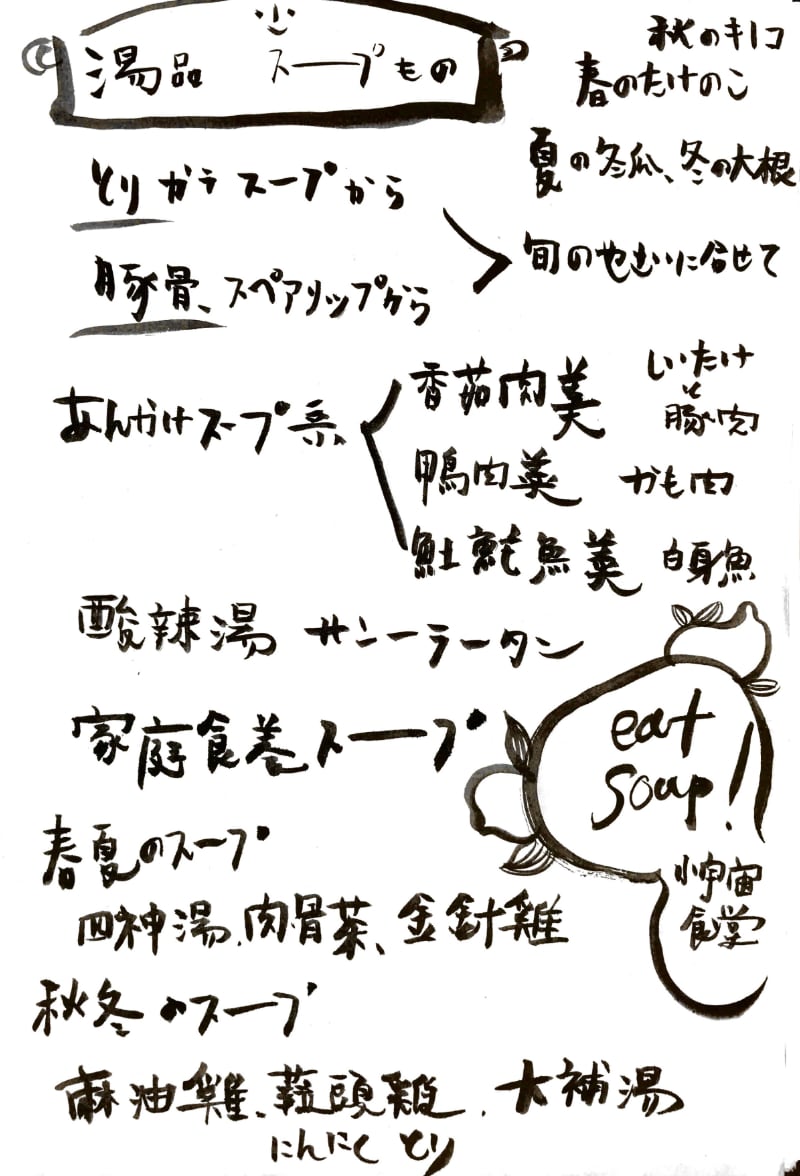 湯品 スープもの
秋のキノコ
春のたけのこ
夏の冬瓜、冬の大根
とりガラスープから
豚骨、スペアリップから
旬のやさいに合せて
あんかけスープ系
香茹肉羹 しいたけと豚肉
鴨肉羹 かも肉
魚羹 白身魚
酸辣湯 サンーラータン
家庭食養スープ
eat
soup!
小宇宙
食堂
春夏のスープ
四神湯、肉骨茶、金針雞
秋冬のスープ
麻油雞、蒜頭雞、大補湯
にんにく とり